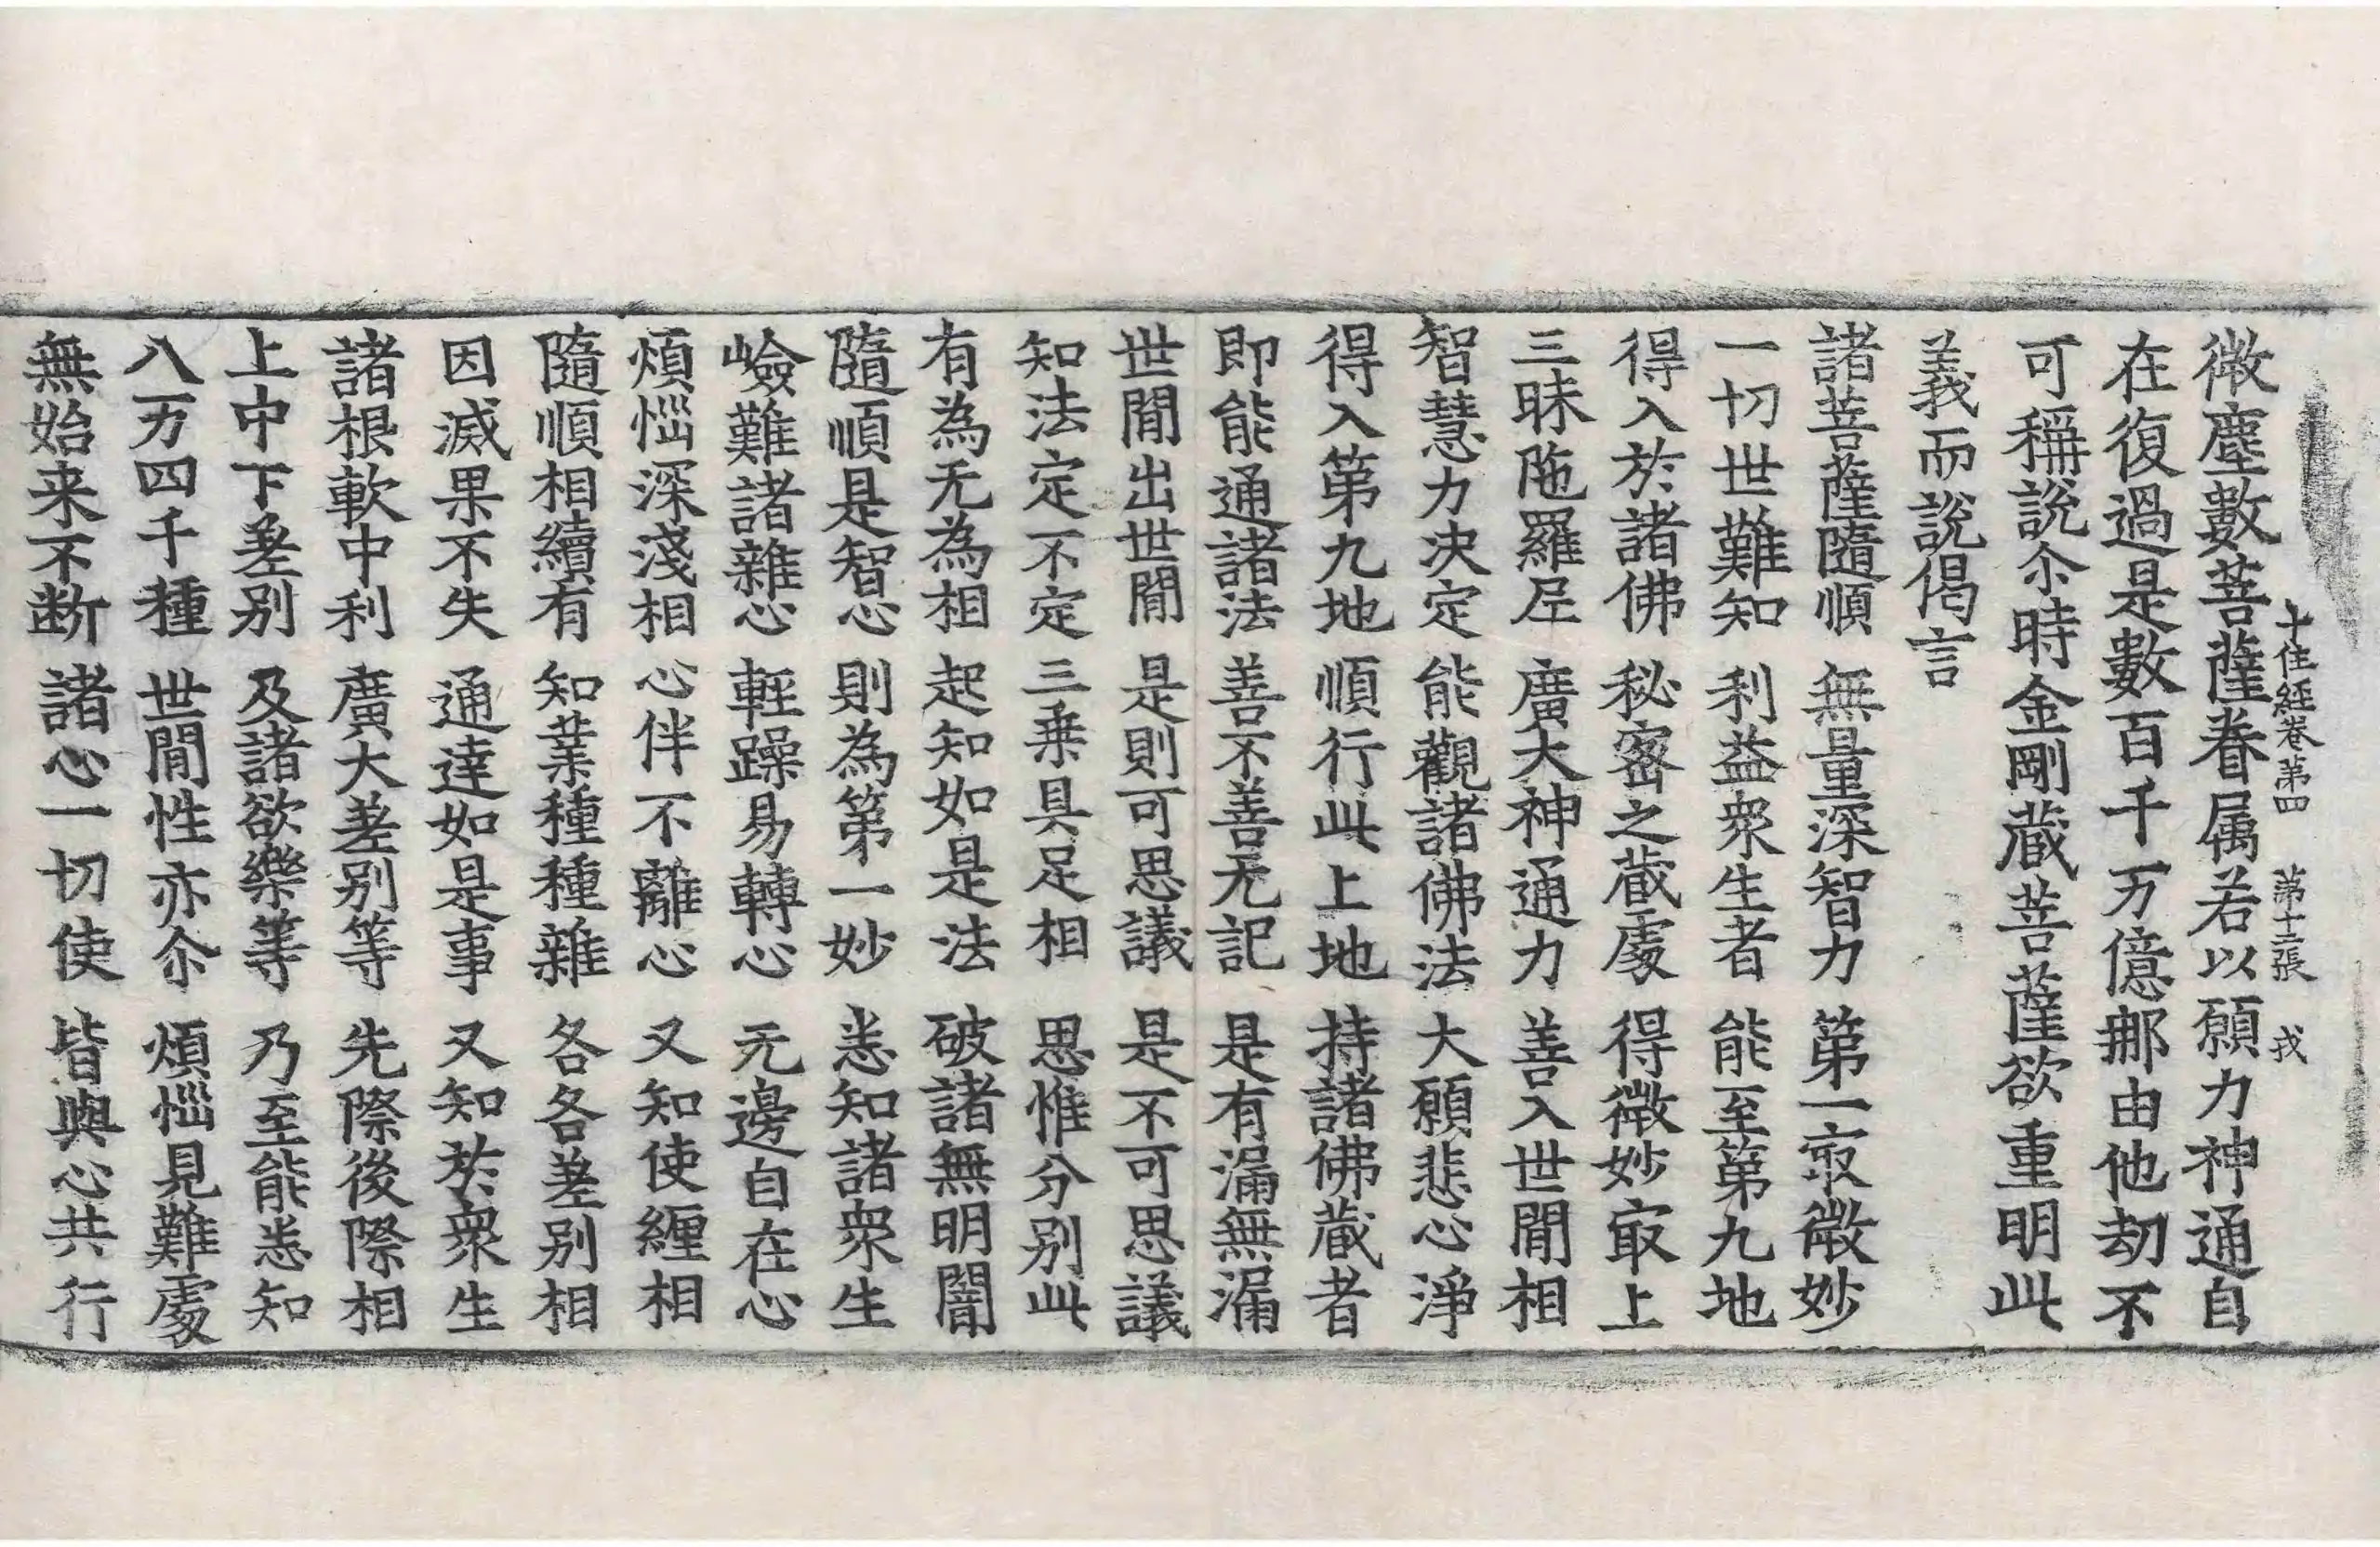 十住經卷第四　第十二張　戎
微塵數菩薩眷属若以願力神通自
在復過是數百千万億那由他劫不
可稱說尒時金剛蔵菩薩欲重明此
義而說偈言
諸菩薩隨順　無量深智力　第一㝡微妙
一切世難知　利益衆生者　能至第九地
得入於諸佛　秘密之蔵處　得微妙㝡上
三昧陁羅尼　廣大神通力　善入世間相
智慧力决定　能觀諸佛法　大願悲心淨
得入第九地　順行此上地　持諸佛蔵者
即能通諸法　善不善无記　是有漏無漏
世間出世間　是則可思議　是不可思議
知法定不定　三乗具足相　思惟分別此
有為无為相　起知如是法　破諸無明闇
隨順是智心　則為第一妙　悉知諸衆生
嶮難諸雜心　軽躁易轉心　无邊自在心
煩惱深淺相　心伴不離心　又知使纏相
隨順相續有　知業種種雜　各各差別相
因滅果不失　通達如是事　又知於衆生
諸根軟中利　廣大差别等　先際後際相
上中下差别　及諸欲樂等　乃至能悉知
八万四千種　世間性亦尒　煩惱見難處
無始来不断　諸心一切使　皆與心共行